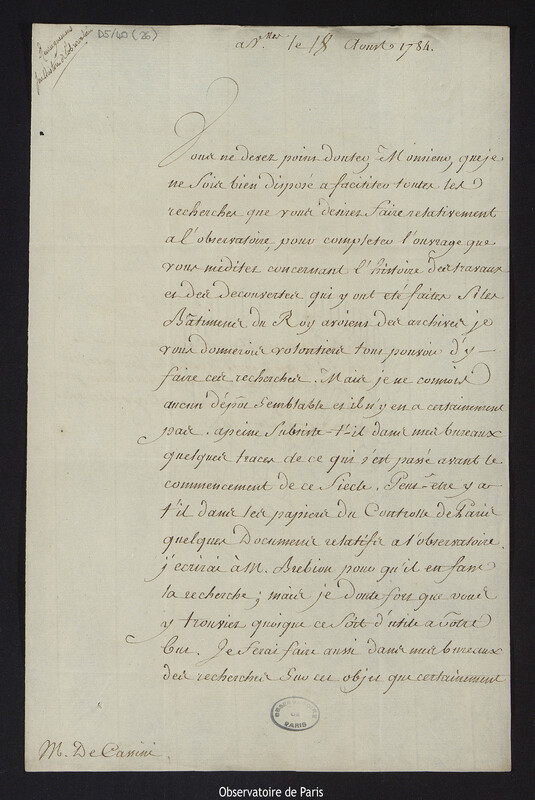 Renseignemens
sur l'histoire de l'observatoire
D5/40 (26)
a V.lles le 18 Aoust 1784.
Vous ne devez point douter, Monsieur, que je
ne sois bien disposé a faciliter toutes les
recherches que vous desirez faire relativement
a l'observatoire, pour completer l'ouvrage que
vous meditez concernant l'histoire des travaux
et des decouvertes qui y ont eté faites. Si les
Bâtimens du Roy avoient des archives je
vous donnerois volontiers tout pouvoir d'y
faire ces recherches. Mais je ne connois
aucun dépost semblable et il n'y en a certainement
pas. apeine subsiste-t-il dans mes bureaux
quelques traces de ce qui s'est passé avant le
commencement de ce Siecle. Peut-etre y a-
t'il dans les papiers du Controlle de Paris
quelques Documens relatifs a l'observatoire.
j'ecrirai à M. Brebion pour qu'il en fasse
la recherche; mais je doute fort que vous
y trouviez quoique ce soit d'utile a votre
but. Je ferai faire aussi dans mes bureaux
des recherches sur cet objet que certainement
M. De Cassini
OBSERVATOIRE
DE
PARIS
Observatoire de Paris